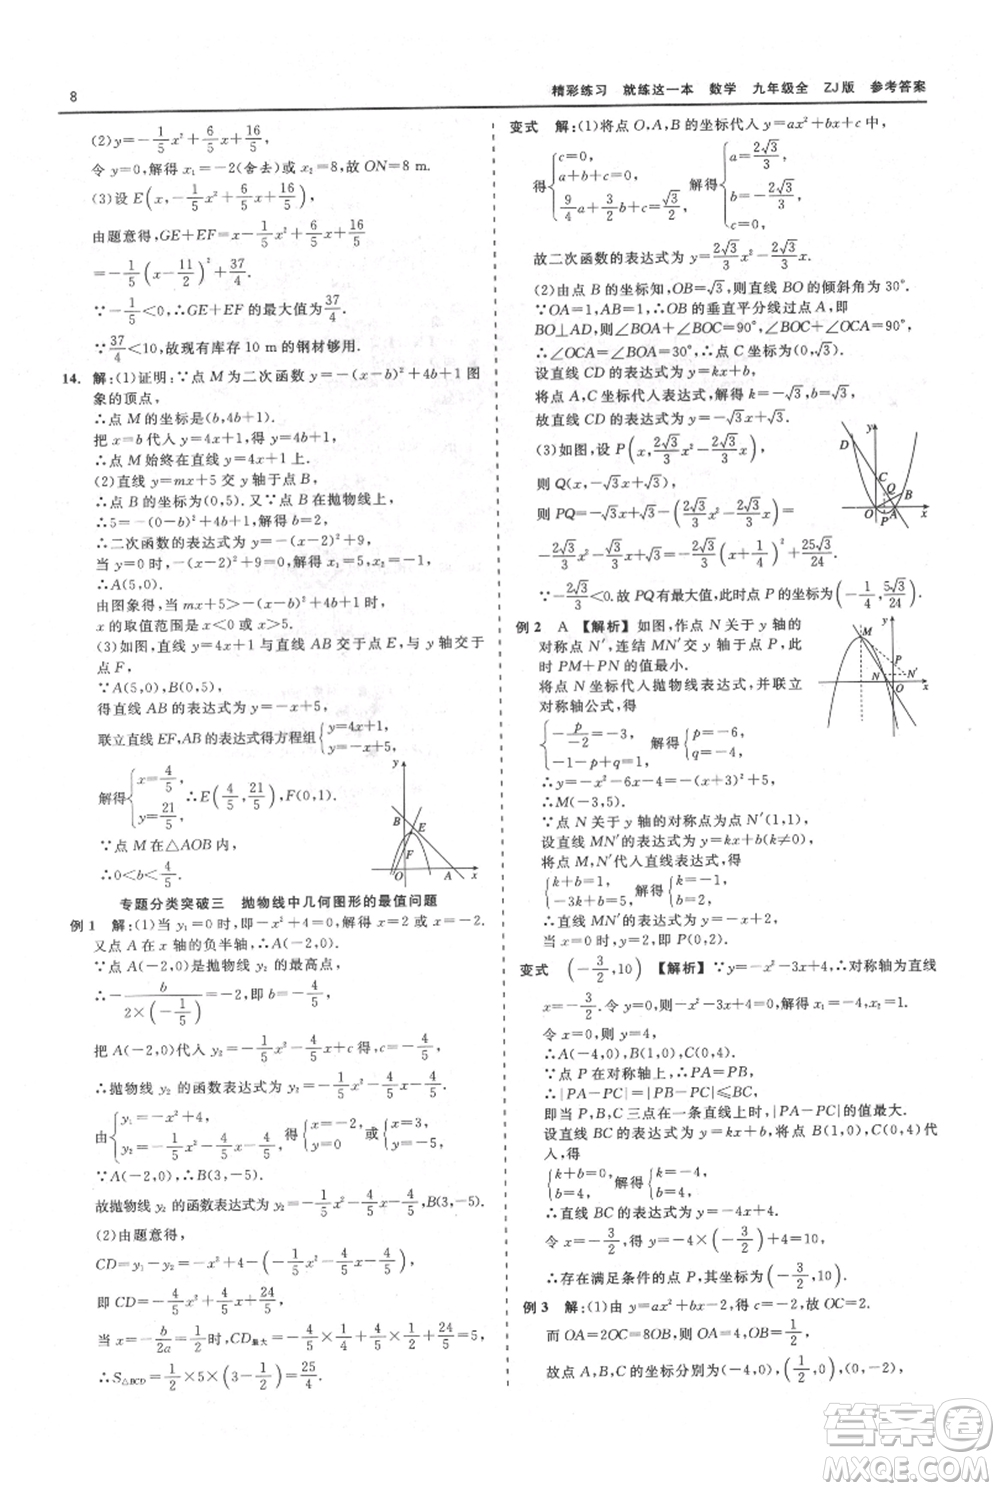 8
精彩练习 就练这一本 数学 九年级全 ZJ版 参考答案
(2)y=-1/5x²+6/5x+16/5.
令 y=0,解得 x₁=-2(舍去)或 x₂=8,故 ON=8 m.
(3)设 E(x,-1/5x²+6/5x+16/5),
由题意得,GE+EF=x-1/5x²+6/5x+16/5
=-1/5(x-11/2)²+37/4.
∵-1/5<0,∴GE+EF 的最大值为37/4.
∵37/4<10,故现有库存 10 m 的钢材够用.
14. 解:(1)证明:∵点 M 为二次函数 y=-(x-b)²+4b+1 图
象的顶点,
∴点 M 的坐标是(b,4b+1).
把 x=b 代入 y=4x+1,得 y=4b+1.
∴点 M 始终在直线 y=4x+1 上.
(2)∵直线 y=mx+5 交 y 轴于点 B,
∴点 B 的坐标为(0,5).又∵点 B 在抛物线上,
∴5=-(0-b)²+4b+1,解得 b=2,
∴二次函数的表达式为 y=-(x-2)²+9.
当 y=0 时,-(x-2)²+9=0,解得 x₁=5,x₂=-1.
∴A(5,0).
由图象得,当 mx+5>-(x-b)²+4b+1 时,
x 的取值范围是 x<0或x>5.
(3)如图,∵直线 y=4x+1 与直线 AB 交于点 E,与 y 轴交于
点 F,
∵A(5,0),B(0,5),
得直线 AB 的表达式为 y=-x+5,
联立直线 EF,AB 的表达式得方程组{y=4x+1, y=-x+5,
解得{x=4/5, y=21/5, ∴E(4/5,21/5),F(0,1).
∵点 M 在△AOB 内,
∴0<b<4/5.
y
B
E
F
O
A
x
专题分类突破三 抛物线中几何图形的最值问题
例 1 解:(1)当 y₁=0 时,即-x-2=0,∴x=-2.
又点 A 在 x 轴的负半轴,∴A(-2,0).
∵点 A(-2,0)是抛物线 y₂ 的顶点,
∴-b/(2×(-1/5))=-2,即 b=-4/5.
把 A(-2,0)代入 y₂=-1/5x²-4/5x+c 得,c=-4/5.
∴抛物线 y₂ 的函数表达式为 y₂=-1/5x²-4/5x-4/5.
由{y₁=-x-2, y₂=-1/5x²-4/5x-4/5, 得{x=-2, y=0 或{x=3, y=-5.
∵A(-2,0),∴B(3,-5).
故抛物线 y₂ 的函数表达式为 y₂=-1/5x²-4/5x-4/5,B(3,-5).
(2)由题意得,
CD=y₃-y₂=-4/5x²+4/5x+4-(-1/5x²-4/5x-4/5),
即 CD=-3/5x²+8/5x+24/5,
当 x=-b/2a=4/3时,CD最大=
变式 解:(1)将点 O,A,B 的坐标代入 y=ax²+bx+c 中,
得{c=0, a+b+c=0, 9/4a+3/2b+c=√3/2, 解得{a=2√3/3, b=-2√3/3, c=0,
故二次函数的表达式为 y=2√3/3x²-2√3/3x.
(2)由点 B 的坐标知,直线 BO 的倾斜角为 30°.
∵OA=1,AB=1,∴OB 的垂直平分线过点 A,即
BO⊥AD,则∠BOA+∠BOC=90°,
又∠BOC+∠OCA=90°,
设直线 CD 的表达式为 y=kx+b,
故直线 CD 的表达式为 y=-√3x+√3.
(3)如图,设 P(x,2√3/3x²-2√3/3x),
则 Q(x,-√3x+√3),
则 PQ=-√3x+√3-(2√3/3x²-2√3/3x)=
-2√3/3x²-√3/3x+√3=-2√3/3(x+1/4)²+25√3/24,
∵-2√3/3<0.故 PQ有最大值,此时点 P 的坐标为(-1/4,5√3/24).
y
C
Q
B
O
P
A
x
例 2 A 【解析】如图,作点 N 关于 y 轴的
对称点 N′,连结 MN′交 y 轴于点 P,此
时 PM+PN 的值最小.
将点 N 坐标代入抛物线表达式,并联立
对称轴公式,得
{-p/-2=-3, -1-p+q=1, 解得{p=-6, q=-4,
∴y=-x²-6x-4=-(x+3)²+5.
∴M(-3,5).
∵点 N 关于 y 轴的对称点为点 N′(1,1).
设直线 MN′的表达式为 y=kx+b(k≠0)
将点 M、N′代入直线表达式,得
{k+b=1, -3k+b=5, 解得{k=-1, b=2,
∴直线 MN′的表达式为 y=-x+2.
令 x=0,则 y=2,即 P(0,2).
y
M
P
N
N′
O
x
变式 (-3/2,10) 【解析】∵y=-x²-3x+4,∴对称轴为直线
x=-3/2.令 y=0,则-x²-3x+4=0,解得 x₁=-4,x₂=1.
令 x=0,则 y=4.
∴A(-4,0),B(1,0),C(0,4).
∵点 P 在对称轴上,∴PA=PB.
∴|PA-PC|=|PB-PC|≤BC.
即当 P,B,C 三点在一条直线上时,|PA-PC|的值最大.
设直线 BC 的表达式为 y=kx+b,将点 B(1,0),C(0,4)代
入,得
{k+b=0, b=4, 解得{k=-4, b=4,
∴直线 BC 的表达式为 y=-4x+4.
令 x=-3/2,则 y=-4×(-3/2)+4=10.
∴存在满足条件的点 P,其坐标为(-3/2,10).
例 3 解:(1)由 y=ax²+bx-2,得 c=-2.故 OC=2.
而 OA=2OC=8OB,则 OA=4,OB=1/2,
故点 A,B,C 的坐标分别为(-4,0),(1/2,0),(0,-2),
答案卷
MXQE.COM